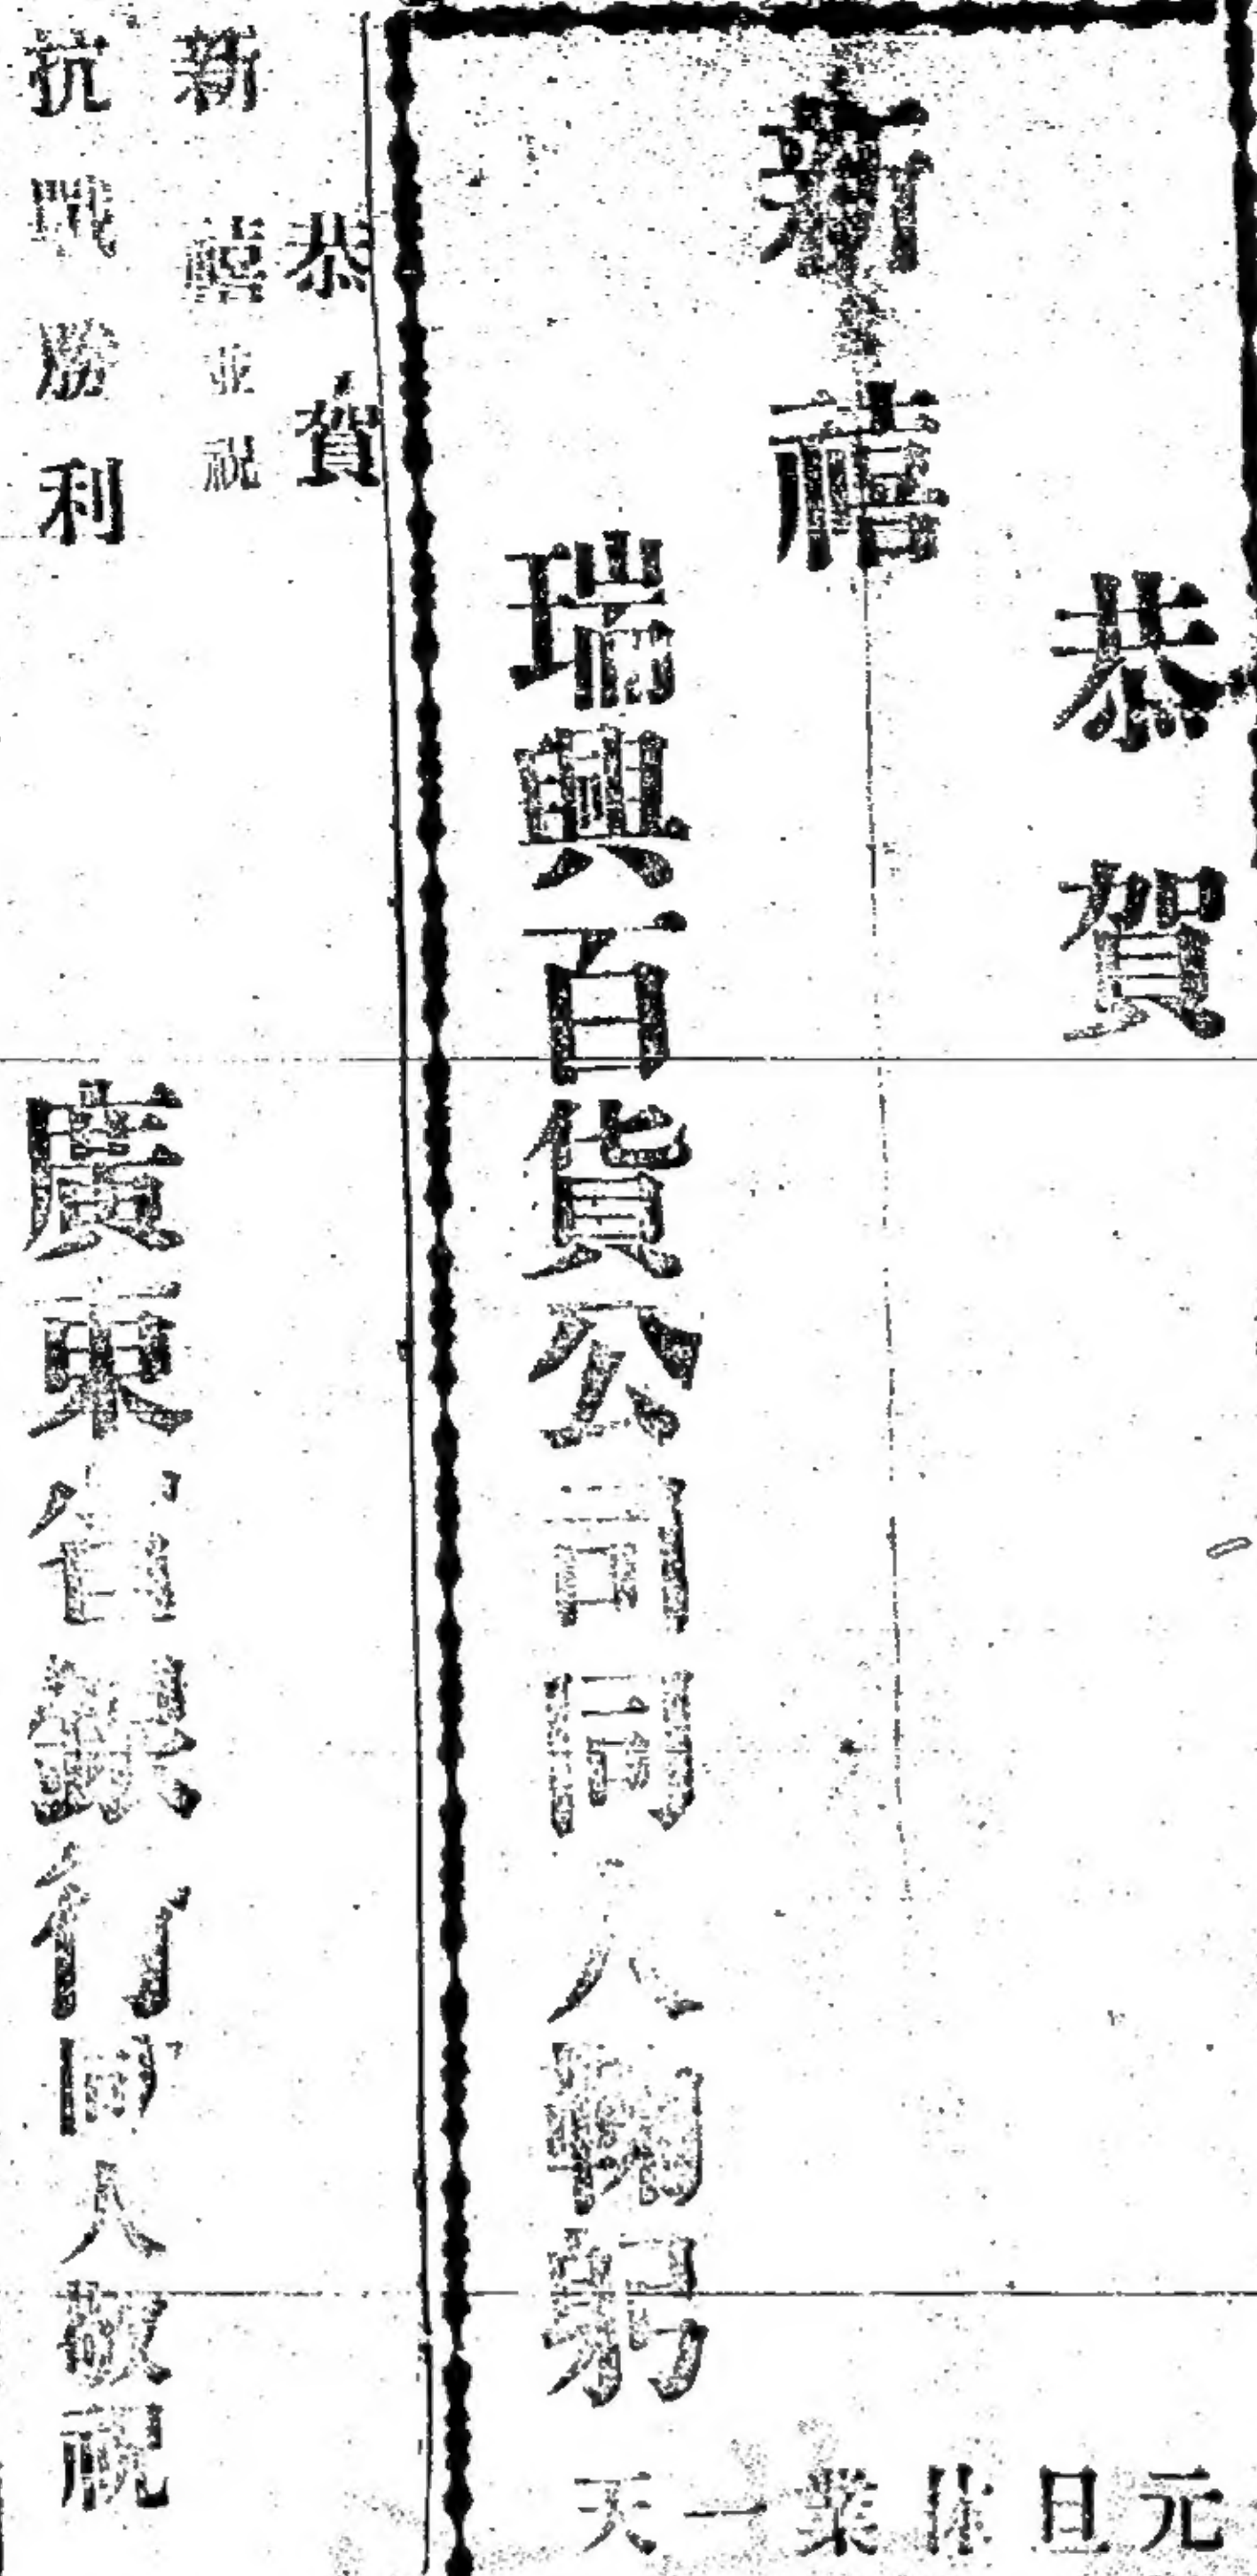 恭賀
新禧
瑞興百貨公司同人鞠躬
元旦休業一天
恭賀
新禧並祝
抗戰勝利
廣東省銀行同人敬祝